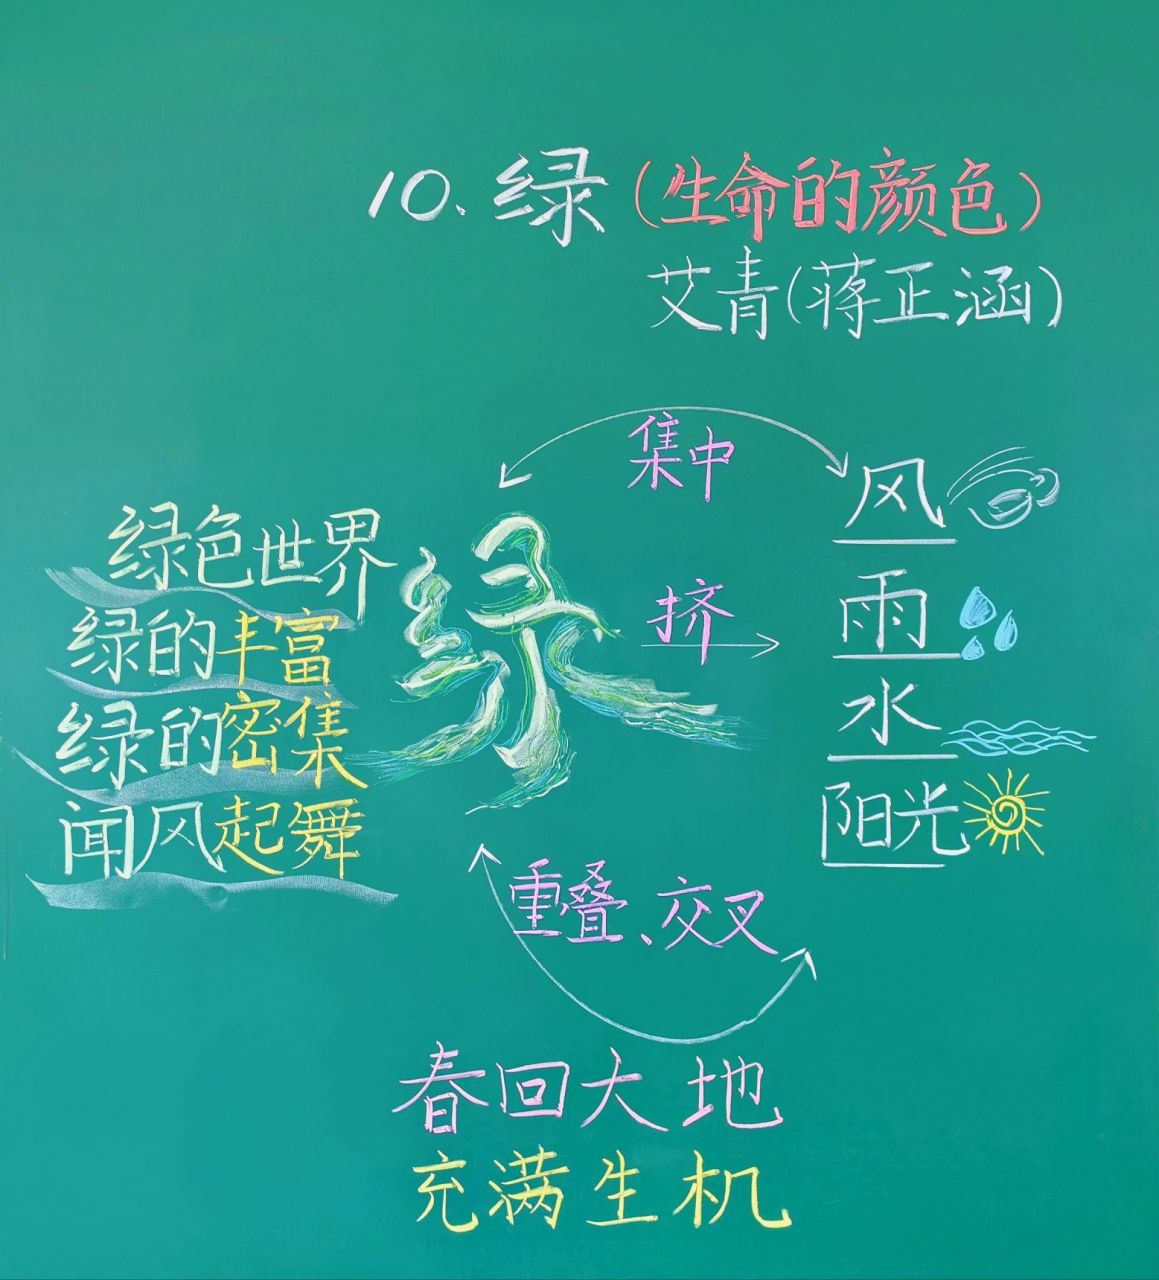 10、绿（生命的颜色）
艾青（蒋正涵）
集中
风
绿色世界
绿
挤
雨
绿的丰富
水
绿的密集
阳光
闻风起舞
重叠、交叉
春回大地
充满生机